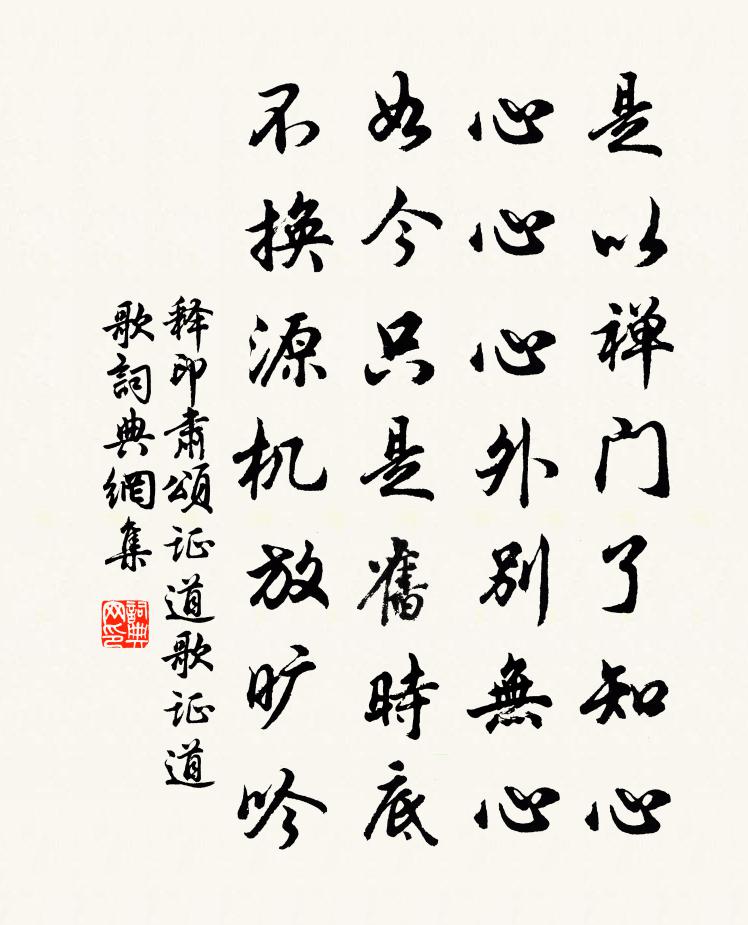 是以禅门了知心
心心心外别無心
如今只是舊時底
不换源机放旷吟
释印肃颂证道歌证道
歌词典網集
詞典网印